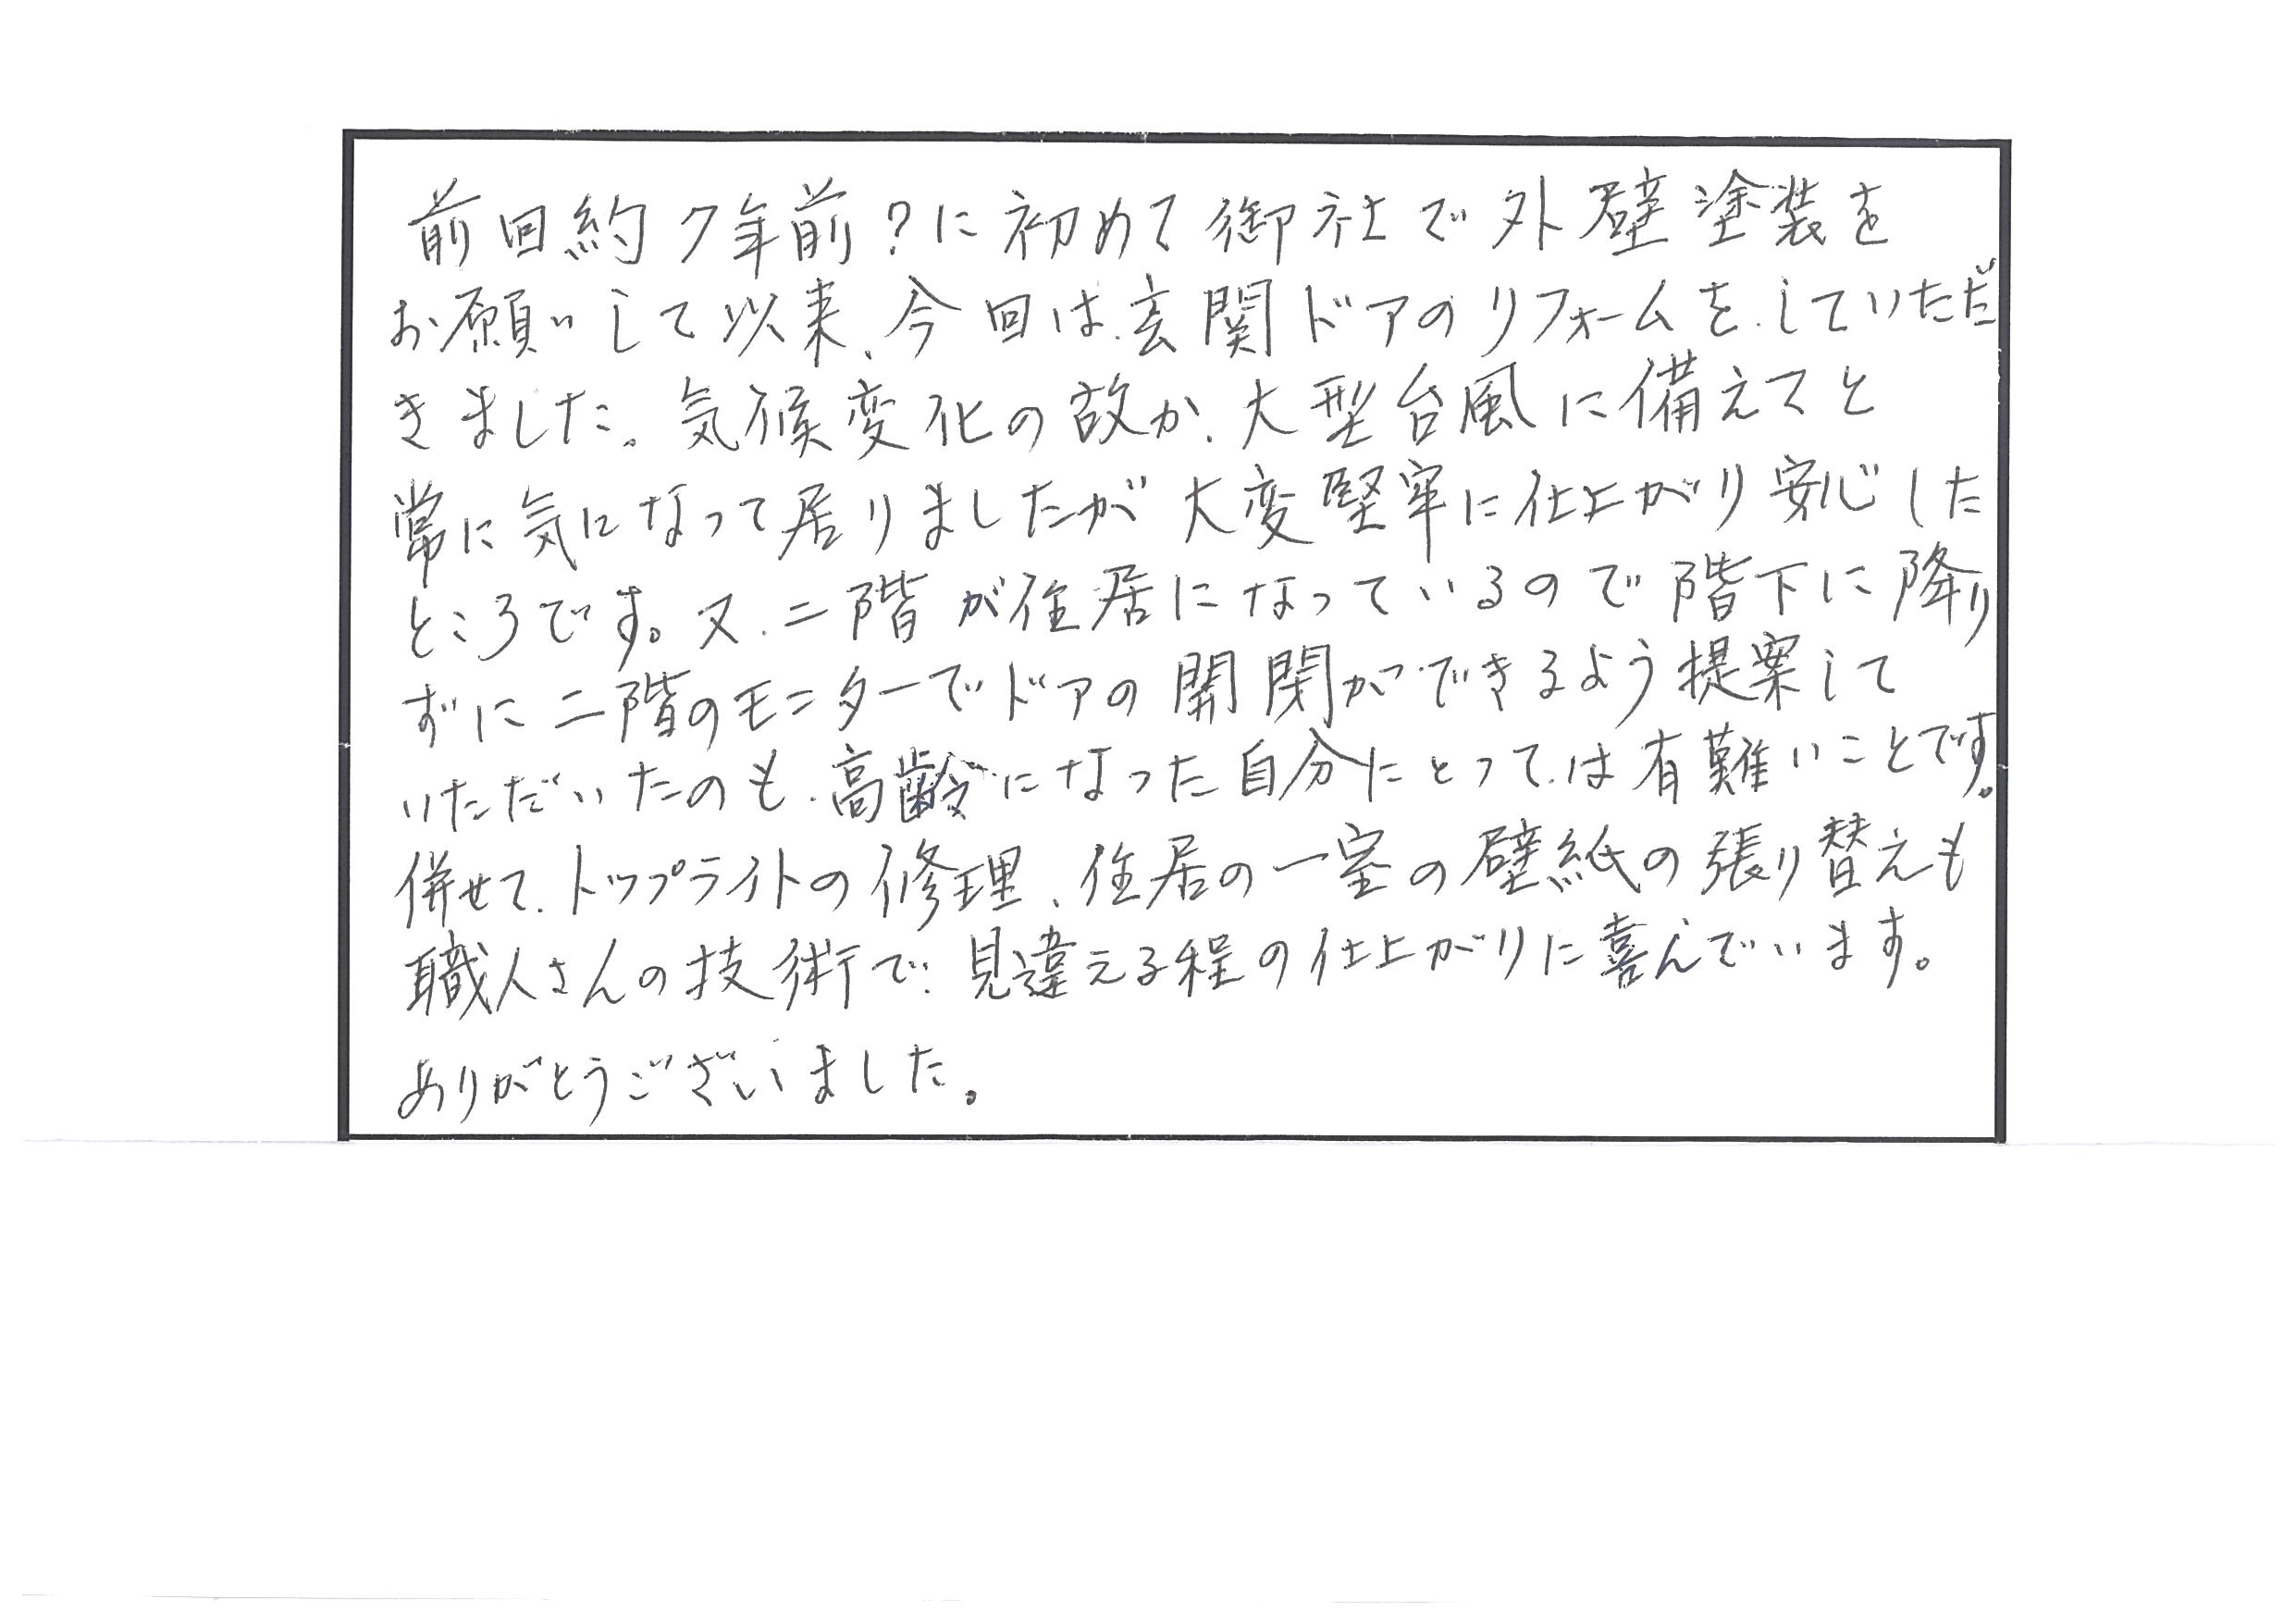 前回約7年前?に初めて御社で外壁塗装を
お願いして以来、今回は、玄関ドアのリフォームを、していただ
きました。気候変化の故か、大型台風に備えてと
常に気になって居りましたが大変堅牢に仕上がり安心した
ところです。又、二階が住居になっているので階下に降り
ずに二階のモニターでドアの開閉ができるよう提案して
いただいたのも、高齢になった自分にとっては有難いことです。
併せて、トップライトの修理、住居の一室の壁紙の張り替えも
職人さんの技術で、見違える程の仕上がりに喜んでいます。
ありがとうございました。